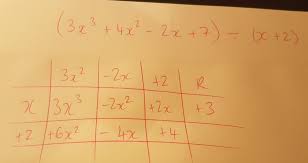 (3x³ + 4x² - 2x + 7) ÷ (x + 2)
3x² -2x +2 R
x 3x³ -2x² +2x +3
+2 +6x² - 4x +4